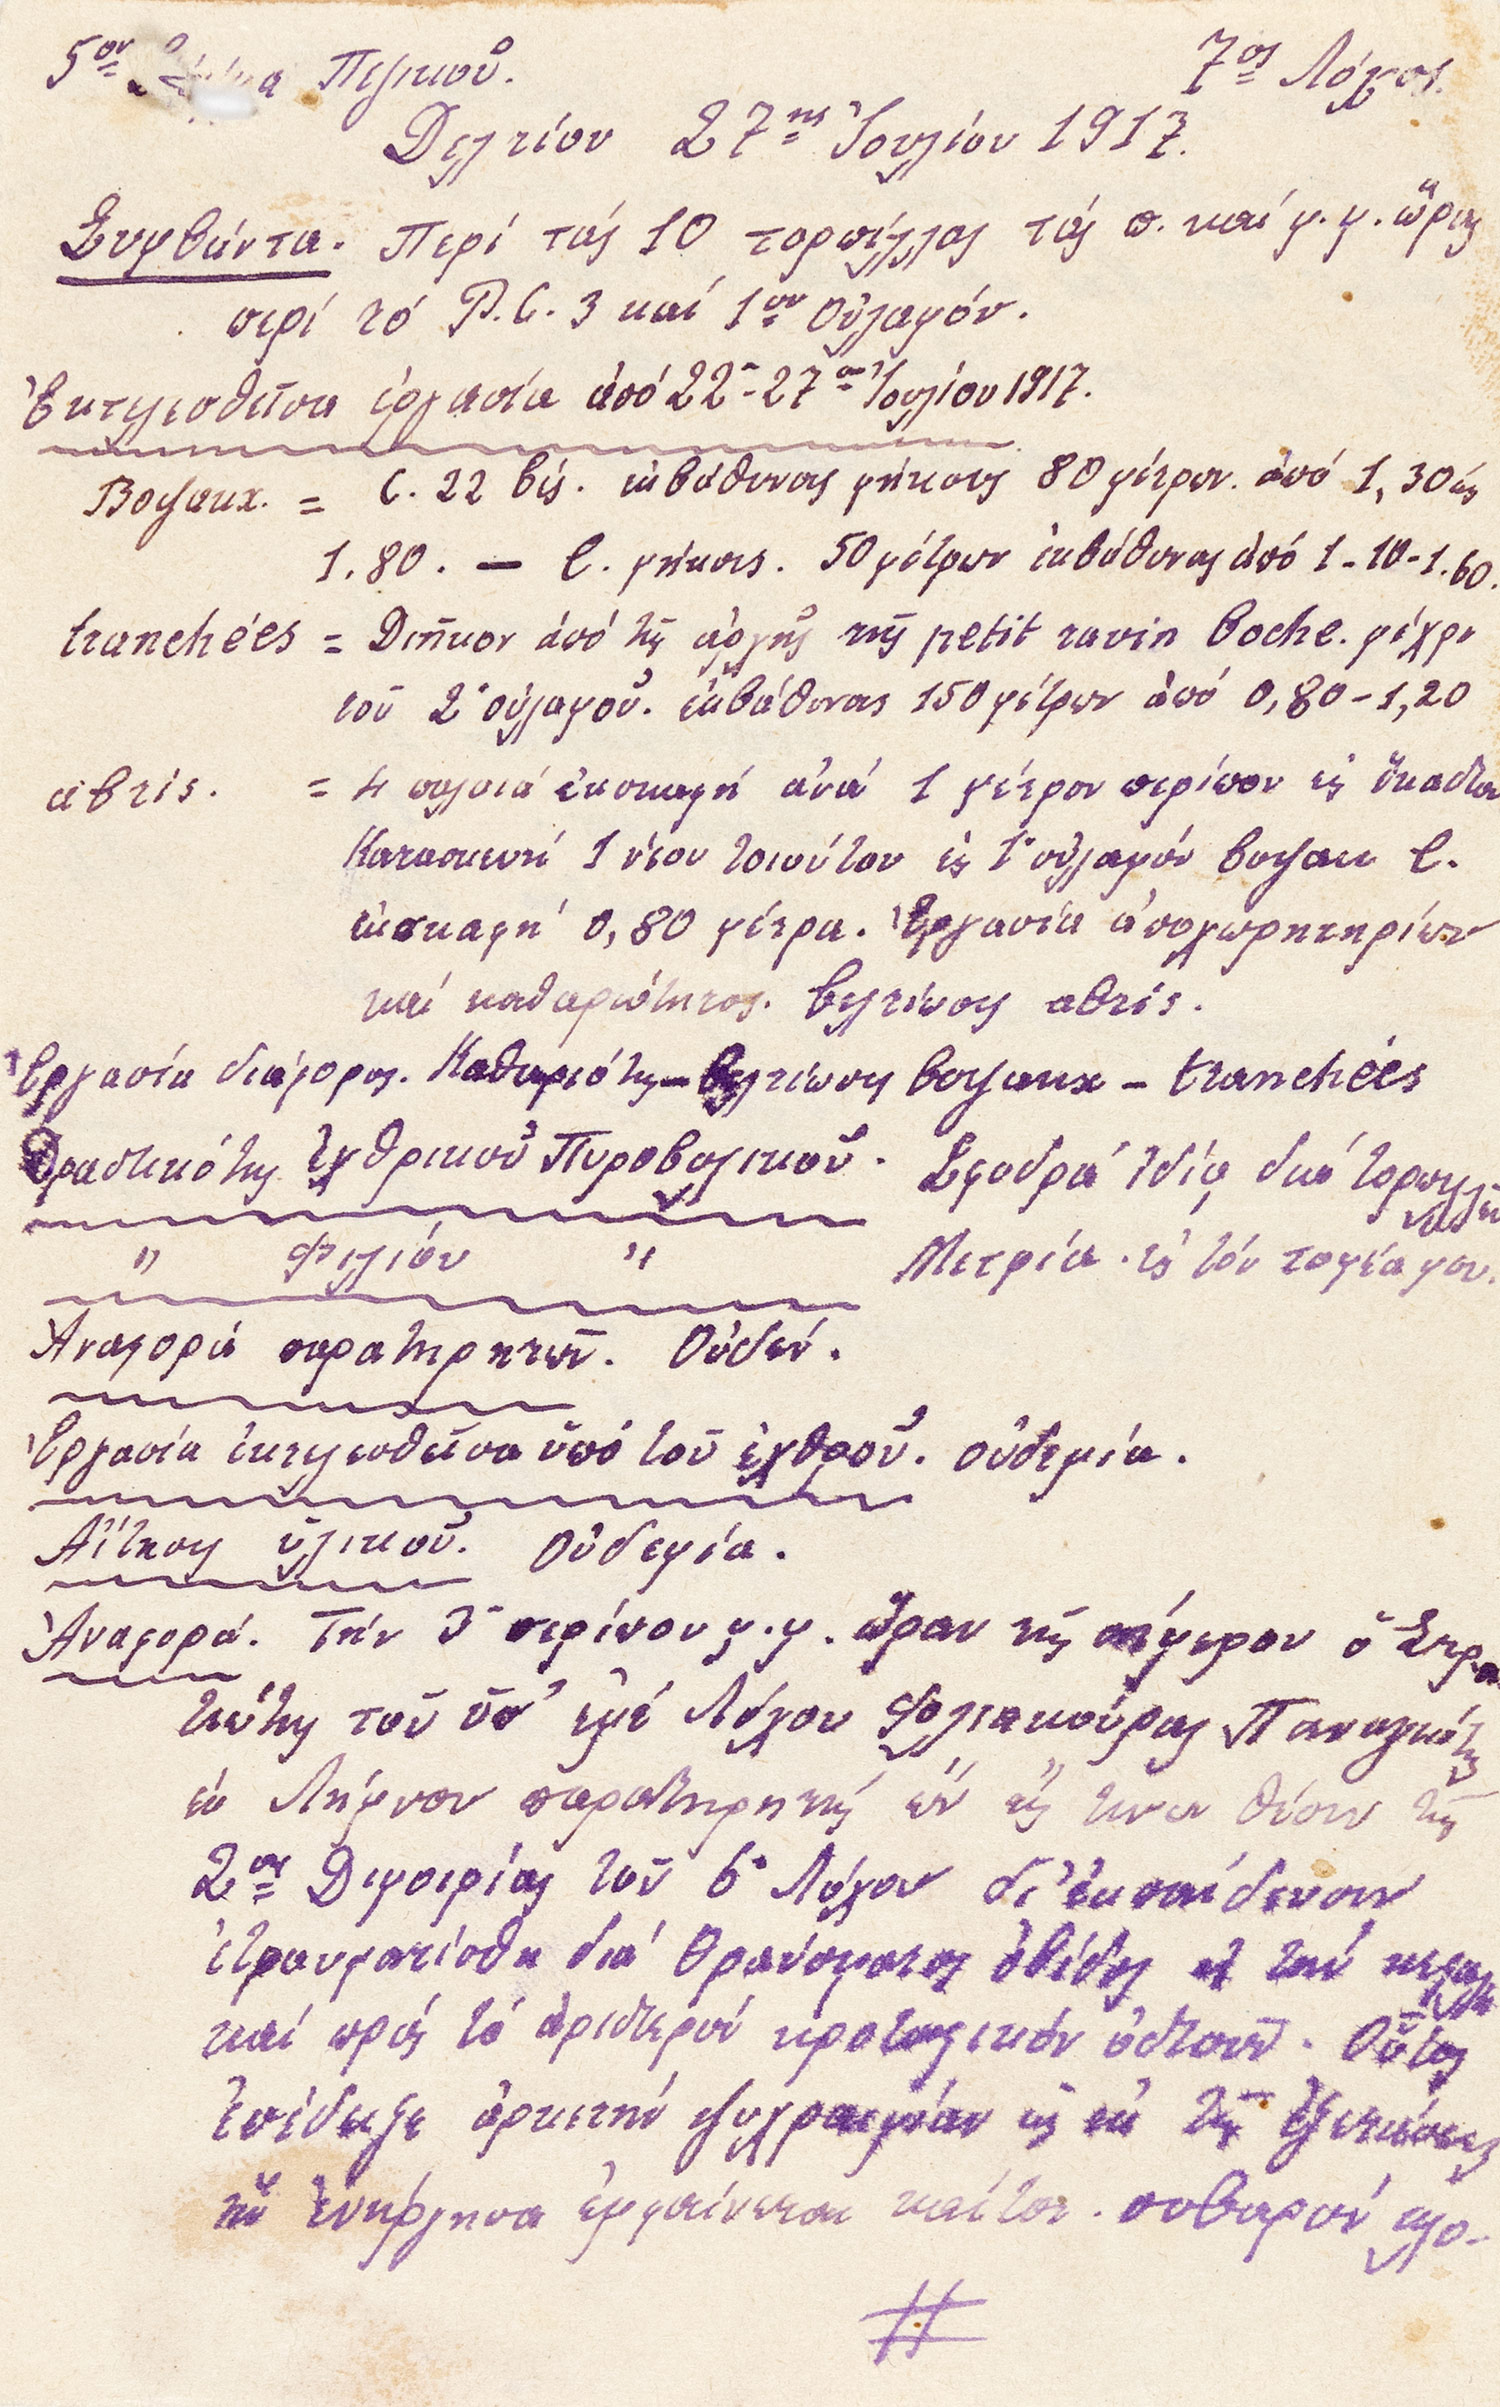 5ον Σύνταγμα Πεζικοῦ. 7ος Λόχος.
Δελτίον 27ης Ἰουλίου 1917.
Συμβάντα. Περί τάς 10 τορπίλλας τάς π. καί μ.μ. ὥρας
περί τό P.C. 3 καί 1ον Οὐλαμόν.
Ἐκτελεσθεῖσα ἐργασία ἀπό 22-27ης Ἰουλίου 1917.
Boyaux. = C. 22 bis. ἐκβάθυνσις μήκους 80 μέτρων. ἀπό 1,30 εἰς
1.80. — C. μήκους. 50 μέτρων ἐκβάθυνσις ἀπό 1-10-1.60.
tranchées = Διῆκον ἀπό τῆς ἀρχῆς τῆς petit ravin boche. μέχρι
τοῦ 2 οὐλαμοῦ. ἐκβάθυνσις 150 μέτρων ἀπό 0,80-1,20
abris. = 4 παλαιά ἐκσκαφή ἀνά 1 μέτρον περίπου εἰς ἕκαστον
Κατασκευή 1 νέου τοιούτου εἰς 1 οὐλαμόν boyau C.
ἐκσκαφή 0,80 μέτρα. Ἐργασία ἀποχωρητηρίων
καί καθαριότητος. βελτίωσις abris.
Ἐργασία διάφορος. Καθαριότης - βελτίωσις boyaux - tranchées
Δραστικότης Ἐχθρικοῦ Πυροβολικοῦ. Σφοδρά ἰδίᾳ διά τορπιλλῶν
" Φιλίου " Μετρία. εἰς τόν τομέα μου.
Ἀναφορά παρατηρητῶν. Οὐδέν.
Ἐργασία ἐκτελεσθεῖσα ὑπό τοῦ ἐχθροῦ. οὐδεμία.
Αἴτησις ὑλικοῦ. Οὐδεμία.
Ἀναφορά. Τήν 3 περίπου μ.μ. ὥραν τῆς σήμερον ὁ Στρα
τιώτης τοῦ ὑπ' ἐμέ Λόχου Φολιακούρας Παναγιώτης
ἐκ Λήμνου παρατηρητής ὤν εἴς τινα θέσιν τῆς
2ας Διμοιρίας τοῦ 6 Λόχου δι' ἐκπαίδευσιν
ἐτραυματίσθη διά θραύσματος ὀβίδος εἰς τήν κεφαλήν
καί πρός τό ἀριστερόν κροταφικόν ὀστοῦν. Οὗτος
ἐπέδειξε ἀρκετήν ψυχραιμίαν ὡς ἐκ τῆς ἐξετάσεως
ἥν ἐνήργησα ἐμφαίνεται καίτοι. σοβαρόν